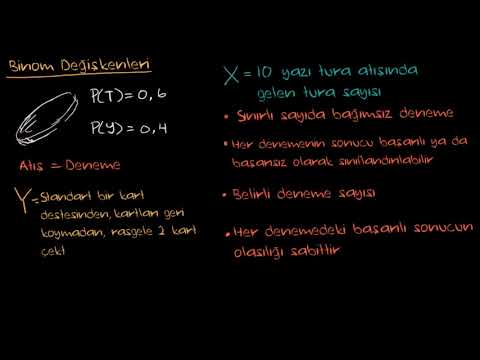 Binom Değişkenleri
P(T)=0,6
P(Y)=0,4
Atış = Deneme
Y= Standart bir kart
destesinden, kartları geri
koymadan, rasgele 2 kart
çekt
X = 10 yazı tura atışında
gelen tura sayısı
• Sınırlı sayıda bağımsız deneme
• Her denemenin sonucu başarılı ya da
başarısız olarak sınıflandırılabilir
• Belirli deneme sayısı
• Her denemedeki başarılı sonucun
olasılığı sabittir